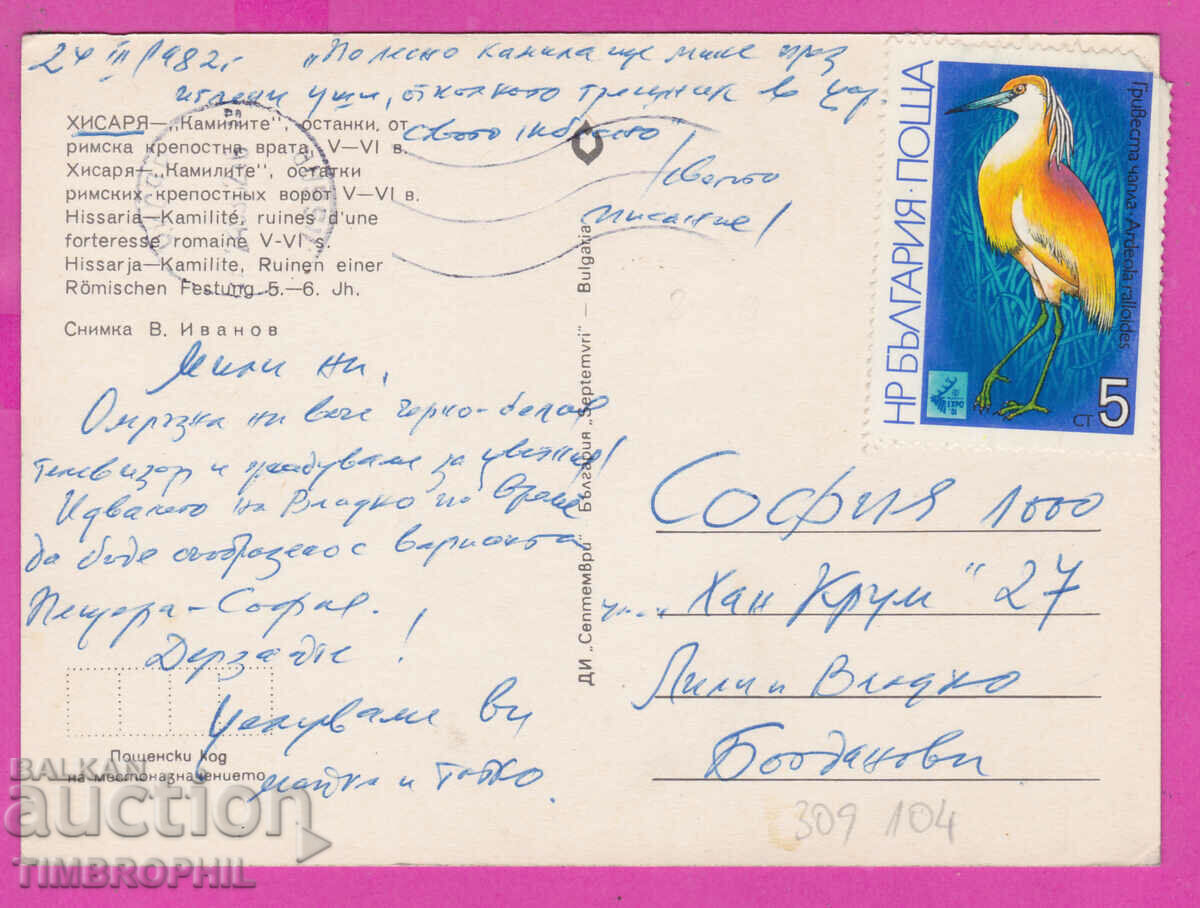 24 III 1982 г. „По лесно камила ще мине през
иглени уши, отколкото грешник в цар
ството небесно"
/Свето
писание/
ХИСАРЯ—„Камилите", останки. от
римска крепостна врата, V—VI в.
Хисаря—„Камилите", остатки
римских крепостных ворот V—VI в.
Hissaria—Kamilité, ruines d'une
forteresse romaine V-VI s.
Hissarja—Kamilite, Ruinen einer
Römischen Festung 5.—6. Jh.
Снимка В. Иванов
Мили ни,
Омръзна ни вече черно-белия
телевизор и жадуваме за цветния!
Идването на Владко по време
да бъде съобразено с варианта
Пещера-София.
Дерзайте!
Целуваме ви
майка и татко.
Пощенски код
на местоназначението
ДИ „Септември" България „Septemvri" — Bulgaria
НР БЪЛГАРИЯ · ПОЩА
Гривеста чапла · Ardeola ralloides
EXPO
СТ 5
СОФИЯ 1000
ул. „Хан Крум" 27
Лили и Владко
Богданови
309 104
BALKAN
auction
TIMBROPHIL